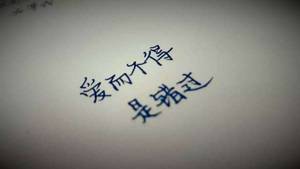 爱而不得
是错过